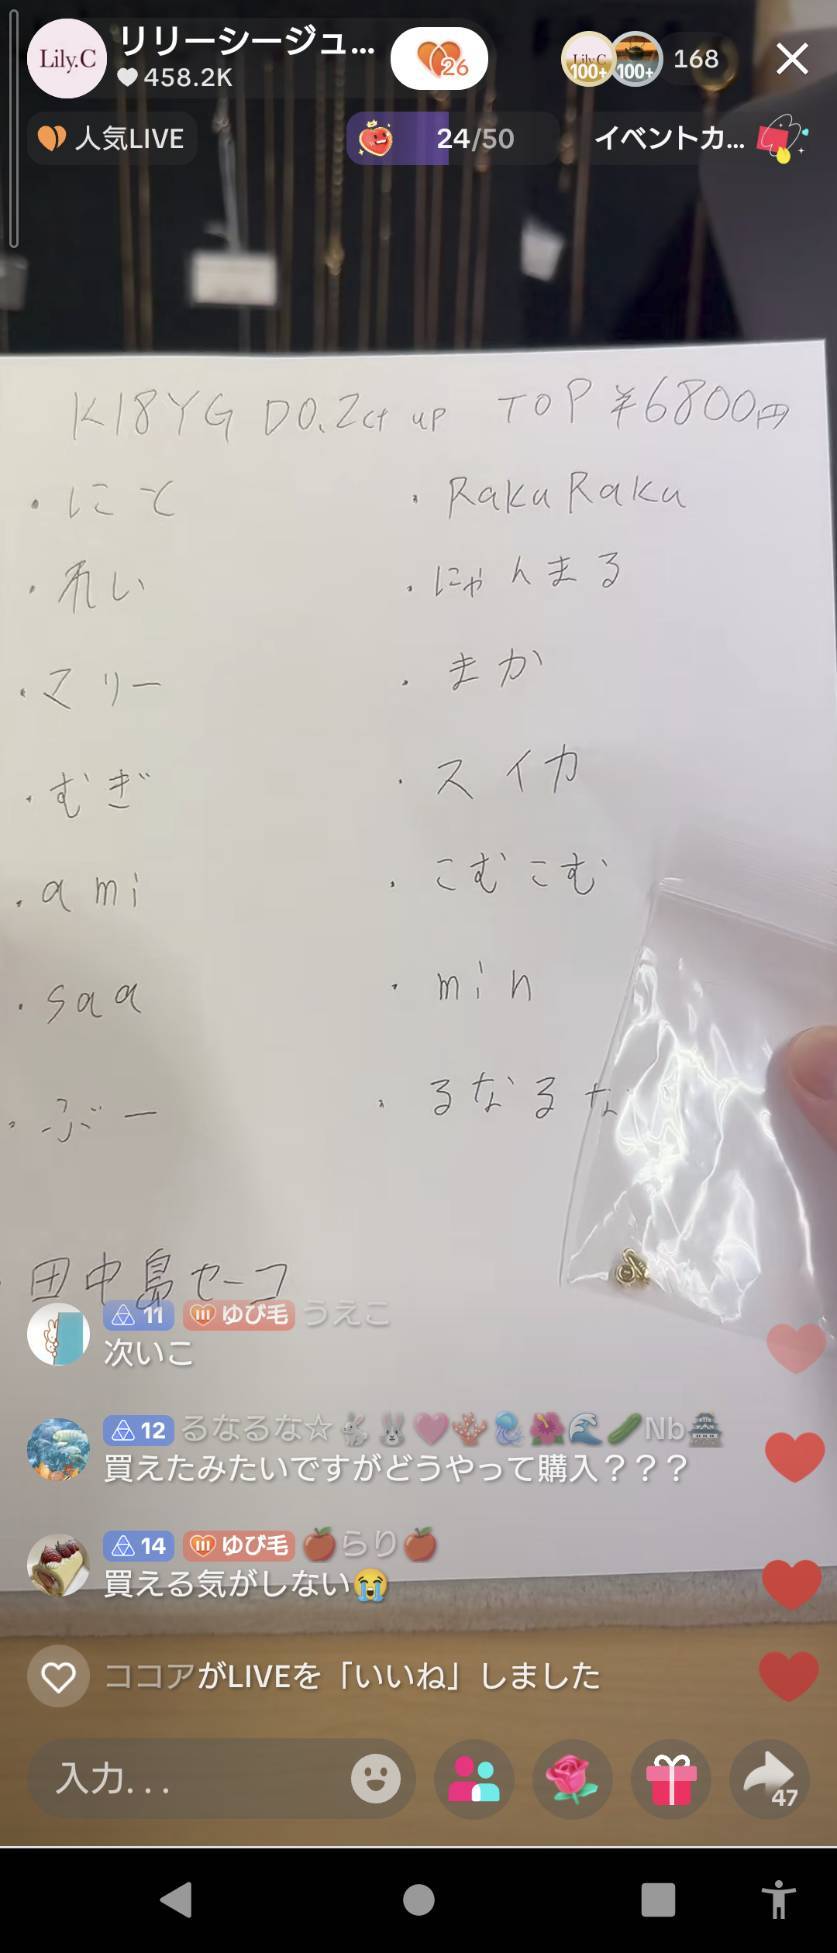 Lily.C
リリーシージュ...
458.2K
26
100+
100+
168
人気LIVE
24/50
イベントカ...
K18YG D0.2ct up TOP ¥6800円
・にこ
・れい
・マリー
・むぎ
・ami
・saa
・ぶー
・田中島セーコ
・RakuRaku
・にゃんまる
・まか
・スイカ
・こむこむ
・min
・るなるな
11 III ゆび毛 うえこ
次いこ
12 るなるな☆🐇🐰🩷🪸🪼🌺🌊🥒Nb🏯
買えたみたいですがどうやって購入???
14 III ゆび毛 🍎らり🍎
買える気がしない😭
ココアがLIVEを「いいね」しました
入力...
47